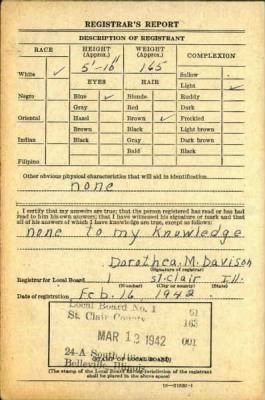 REGISTRAR'S REPORT
DESCRIPTION OF REGISTRANT
RACE HEIGHT (Approx.) WEIGHT (Approx.) COMPLEXION
White ✓ 5'-10" 165 Sallow
EYES HAIR Light ✓
Negro Blue ✓ Blonde Ruddy
Gray Red Dark
Oriental Hazel Brown ✓ Freckled
Brown Black Light brown
Indian Black Gray Dark brown
Bald Black
Filipino
Other obvious physical characteristics that will aid in identification
none
I certify that my answers are true; that the person registered has read or has had
read to him his own answers; that I have witnessed his signature or mark and that
all of his answers of which I have knowledge are true, except as follows:
none to my Knowledge
Dorothea M. Davison
(Signature of registrar)
Registrar for Local Board 1 St. Clair Ill.
(Number) (City or county) (State)
Date of registration Feb. 16, 1942
Local Board No. 1 61
St. Clair County 163
MAR 12 1942 001
24-A South
Belleville, Illinois
(STAMP OF LOCAL BOARD)
(The stamp of the Local Board having jurisdiction of the registrant
shall be placed in the above space.)